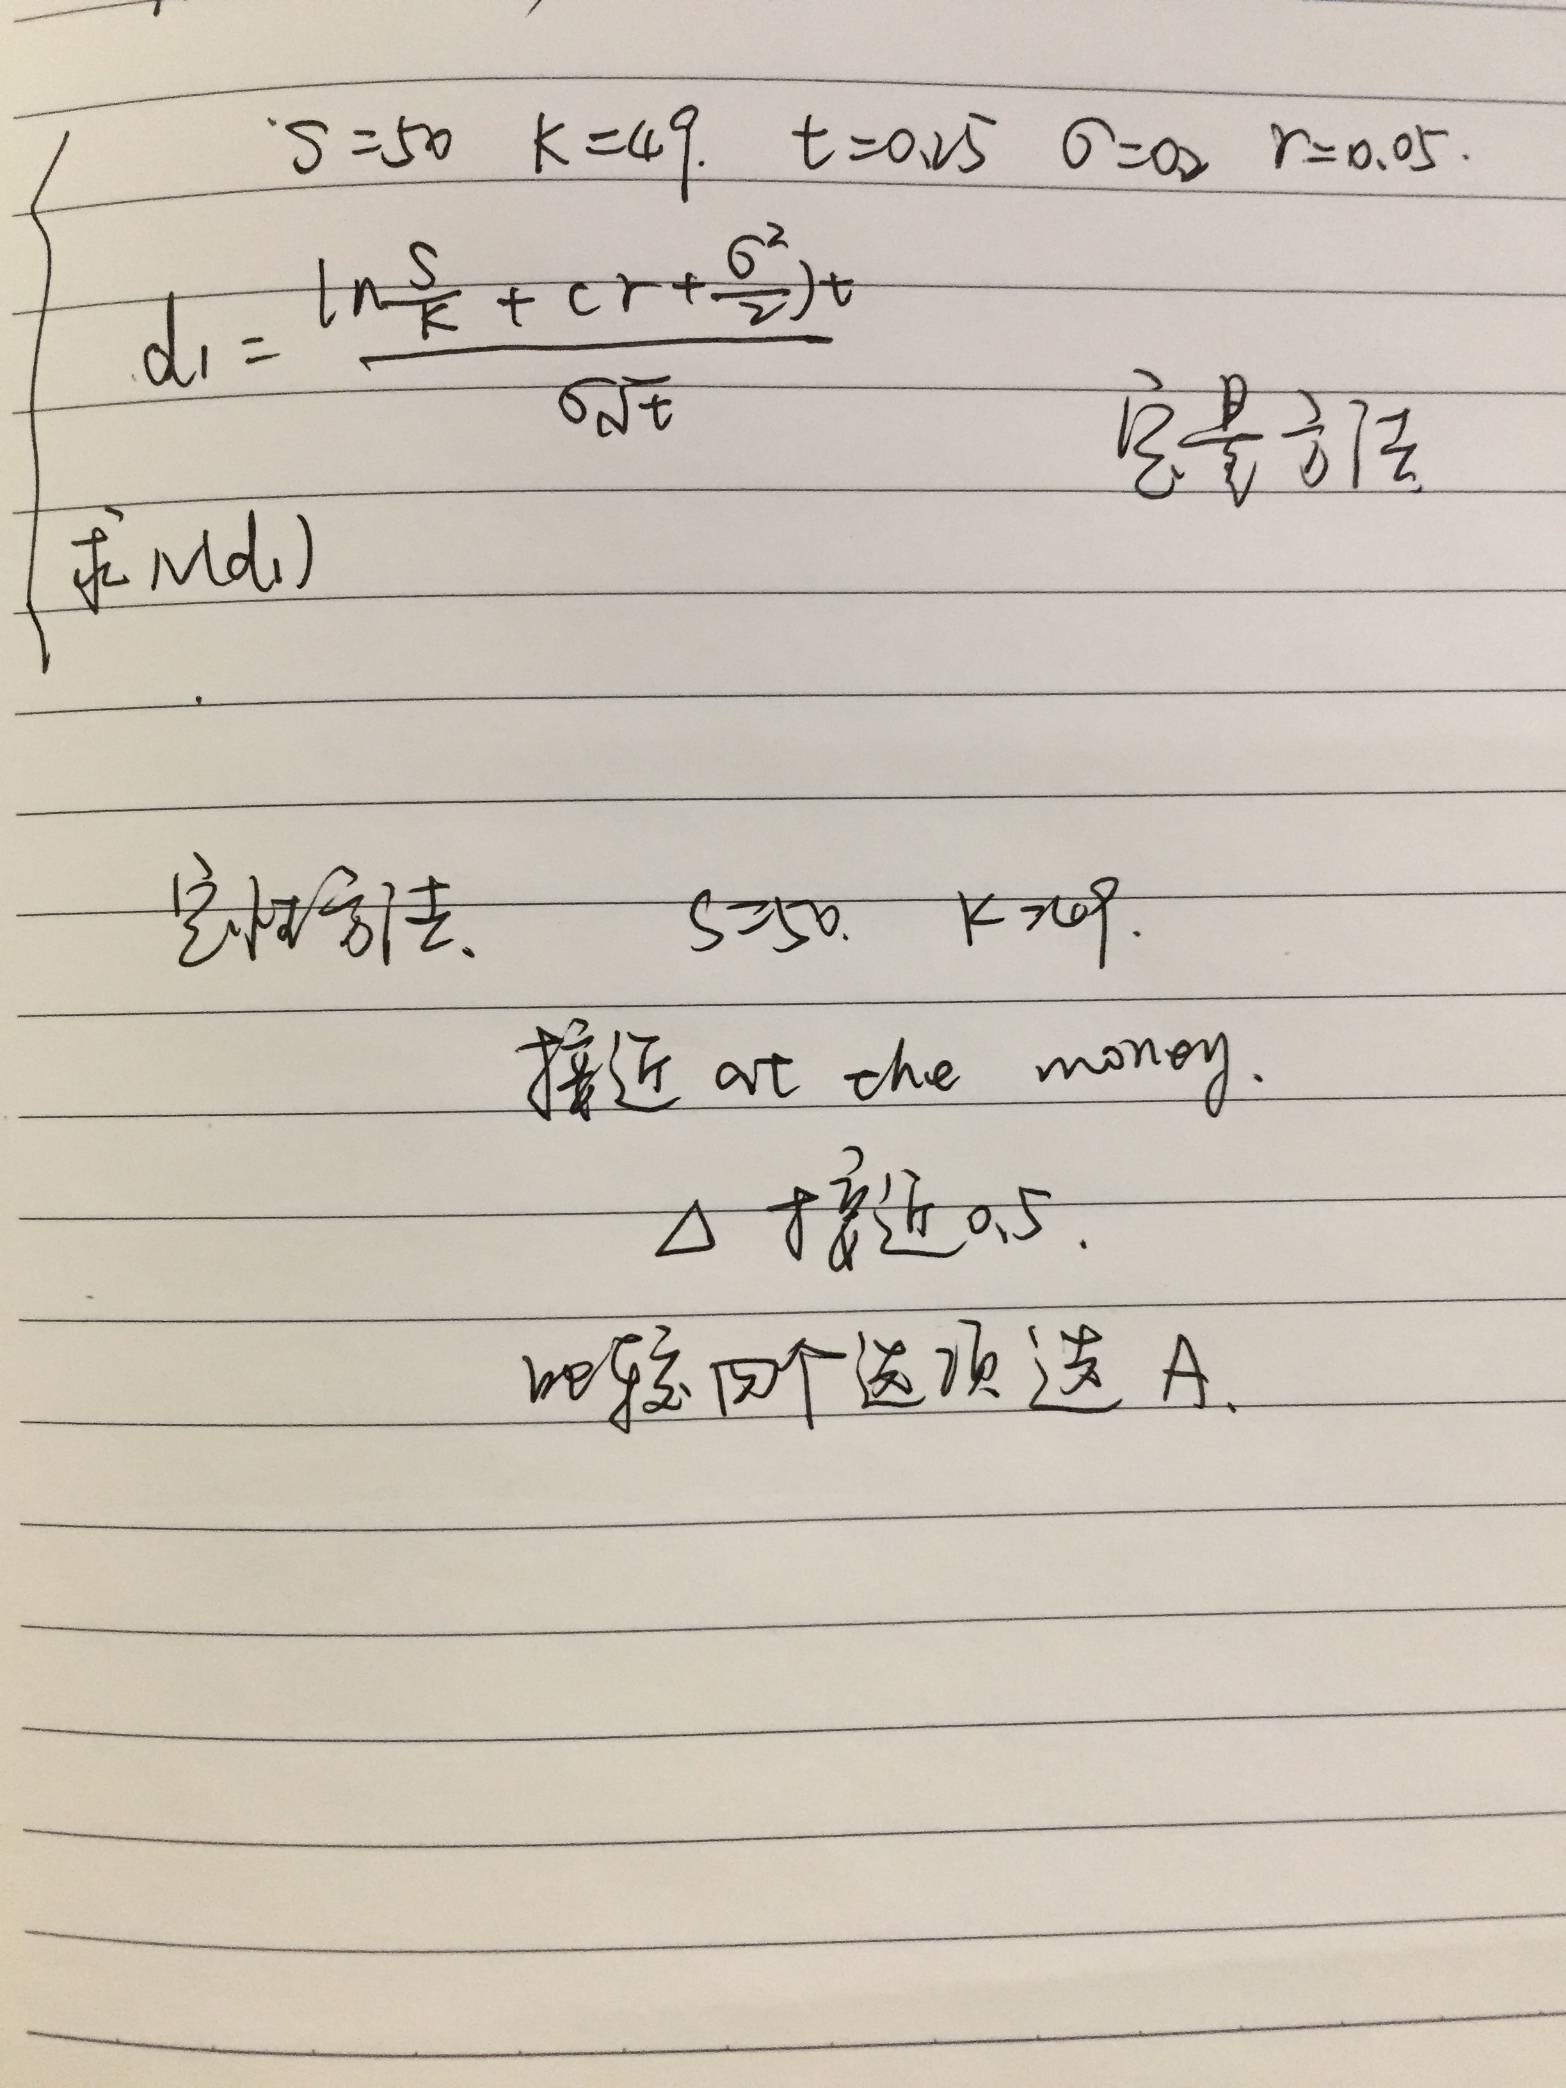 S=50 K=49. t=0.25 σ=0.2 r=0.05.
d₁ = (ln S/K + (r + σ²/2)t) / (σ√t)
定量方法
求 N(d₁)
定性方法. S=50. K=49.
接近 at the money.
Δ 接近 0.5.
比较四个选项选 A.